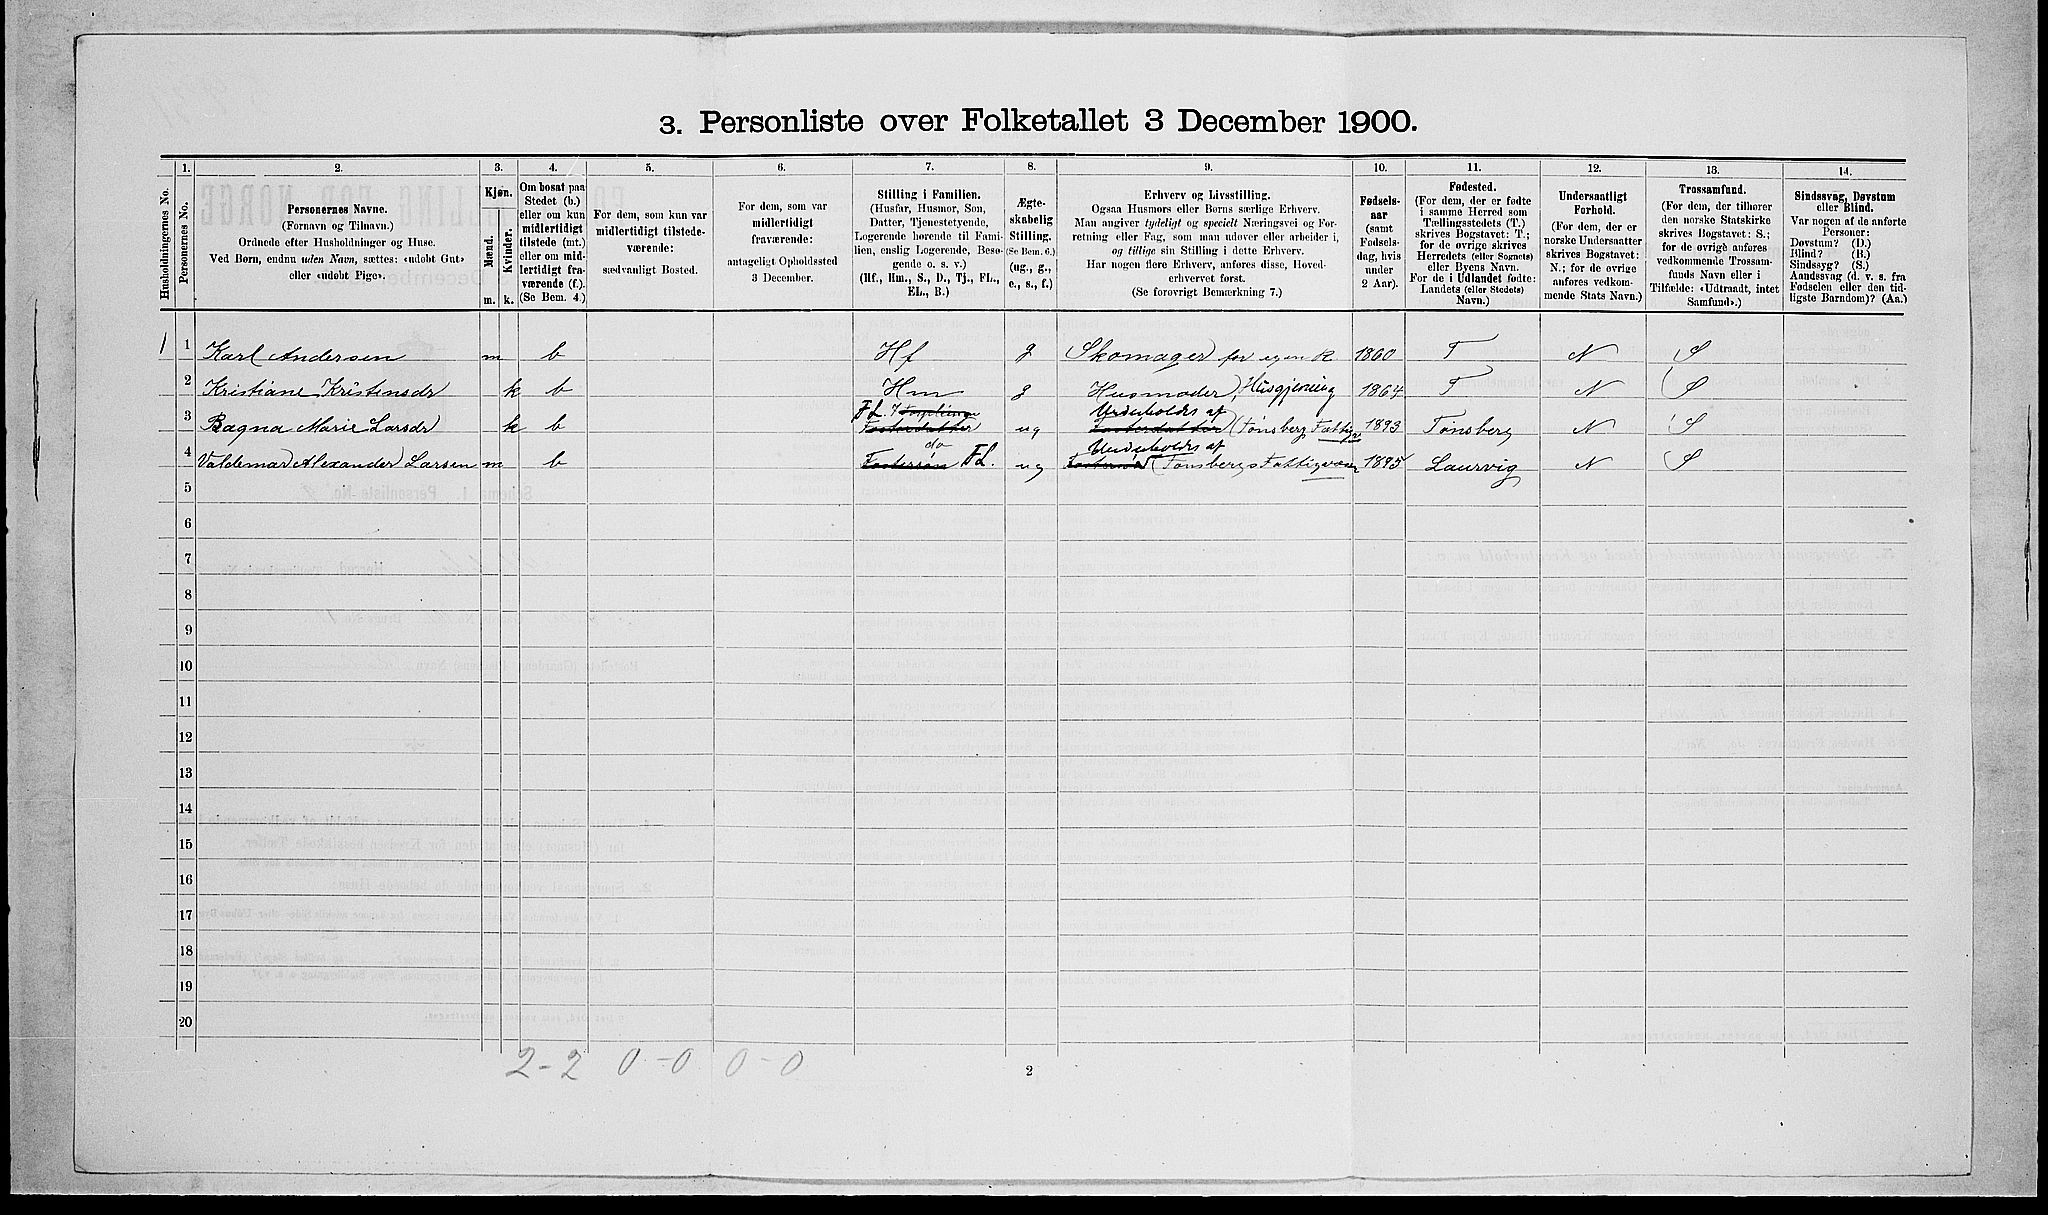 3. Personliste over Folketallet 3 December 1900.
1. 2. 3. 4. 5. 6. 7. 8. 9. 10. 11. 12. 13. 14.
Husholdningernes No.
Personernes No.
Personernes Navne.
(Fornavn og Tilnavn.)
Ordnede efter Husholdninger og Huse.
Ved Børn, endnu uden Navn, sættes: «udøbt Gut»
eller «udøbt Pige».
Kjøn.
Mænd.
Kvinder.
m. k.
Om bosat paa
Stedet (b.)
eller om kun
midlertidigt
tilstede (mt.)
eller om mid-
lertidigt fra-
værende (f.).
(Se Bem. 4.)
For dem, som kun var
midlertidigt tilstede-
værende:
sædvanligt Bosted.
For dem, som var
midlertidigt
fraværende:
antageligt Opholdssted
3 December.
Stilling i Familien.
(Husfar, Husmor, Søn,
Datter, Tjenestetyende,
Logerende hørende til Fami-
lien, enslig Logerende, Besø-
gende o. s. v.)
(Hf., Hm., S., D., Tj., FL.,
EL., B.)
Ægte-
skabelig
Stilling.
(Se Bem. 6.)
(ug., g.,
e., s., f.)
Erhverv og Livsstilling.
Ogsaa Husmors eller Børns særlige Erhverv.
Man angiver tydeligt og specielt Næringsvei og For-
retning eller Fag, som man udøver eller arbeider i,
og tillige sin Stilling i dette Erhverv.
Har nogen flere Erhverv, anføres disse, Hoved-
erhvervet først.
(Se forøvrigt Bemærkning 7.)
Fødsels-
aar
(samt
Fødsels-
dag, hvis
under
2 Aar).
Fødested.
(For dem, der er fødte
i samme Herred som
Tællingsstedets (T.)
skrives Bogstavet: T.;
for de øvrige skrives
Herredets (eller Sognets)
eller Byens Navn.
For de i Udlandet fødte:
Landets (eller Stedets)
Navn.)
Undersaatligt
Forhold.
(For dem, der er
norske Undersaatter
skrives Bogstavet:
N.; for de øvrige
anføres vedkom-
mende Stats Navn.)
Trossamfund.
(For dem, der tilhører
den norske Statskirke
skrives Bogstavet: S.;
for de øvrige anføres
vedkommende Trossam-
funds Navn eller i
Tilfælde: «Udtraadt, intet
Samfund».)
Sindssvag, Døvstum
eller Blind.
Var nogen af de anførte
Personer:
Døvstum? (D.)
Blind? (B.)
Sindssyg? (S.)
Aandssvag (d. v. s. fra
Fødselen eller den tid-
ligste Barndom)? (Aa.)
1 1 Karl Andersen m b Hf g Skomager for egen R 1860 T N S
2 Kristiane Kristensdr k b Hm g Husmoder, Husgjerning 1864 T N S
3 Ragna Marie Larsdr k b FL. Fosterdatter ug Underholdes af Fosterdatter (Tønsberg Fattigv 1893 Tønsberg N S
4 Valdemar Alexander Larsen m b do Fostersøn FL. ug Underholdes af Fostersøn (Tønsbergs Fattigvæsen 1895 Laurvig N S
5
6
7
8
9
10
11
12
13
14
15
16
17
18
19
20
2-2 0-0 0-0
2